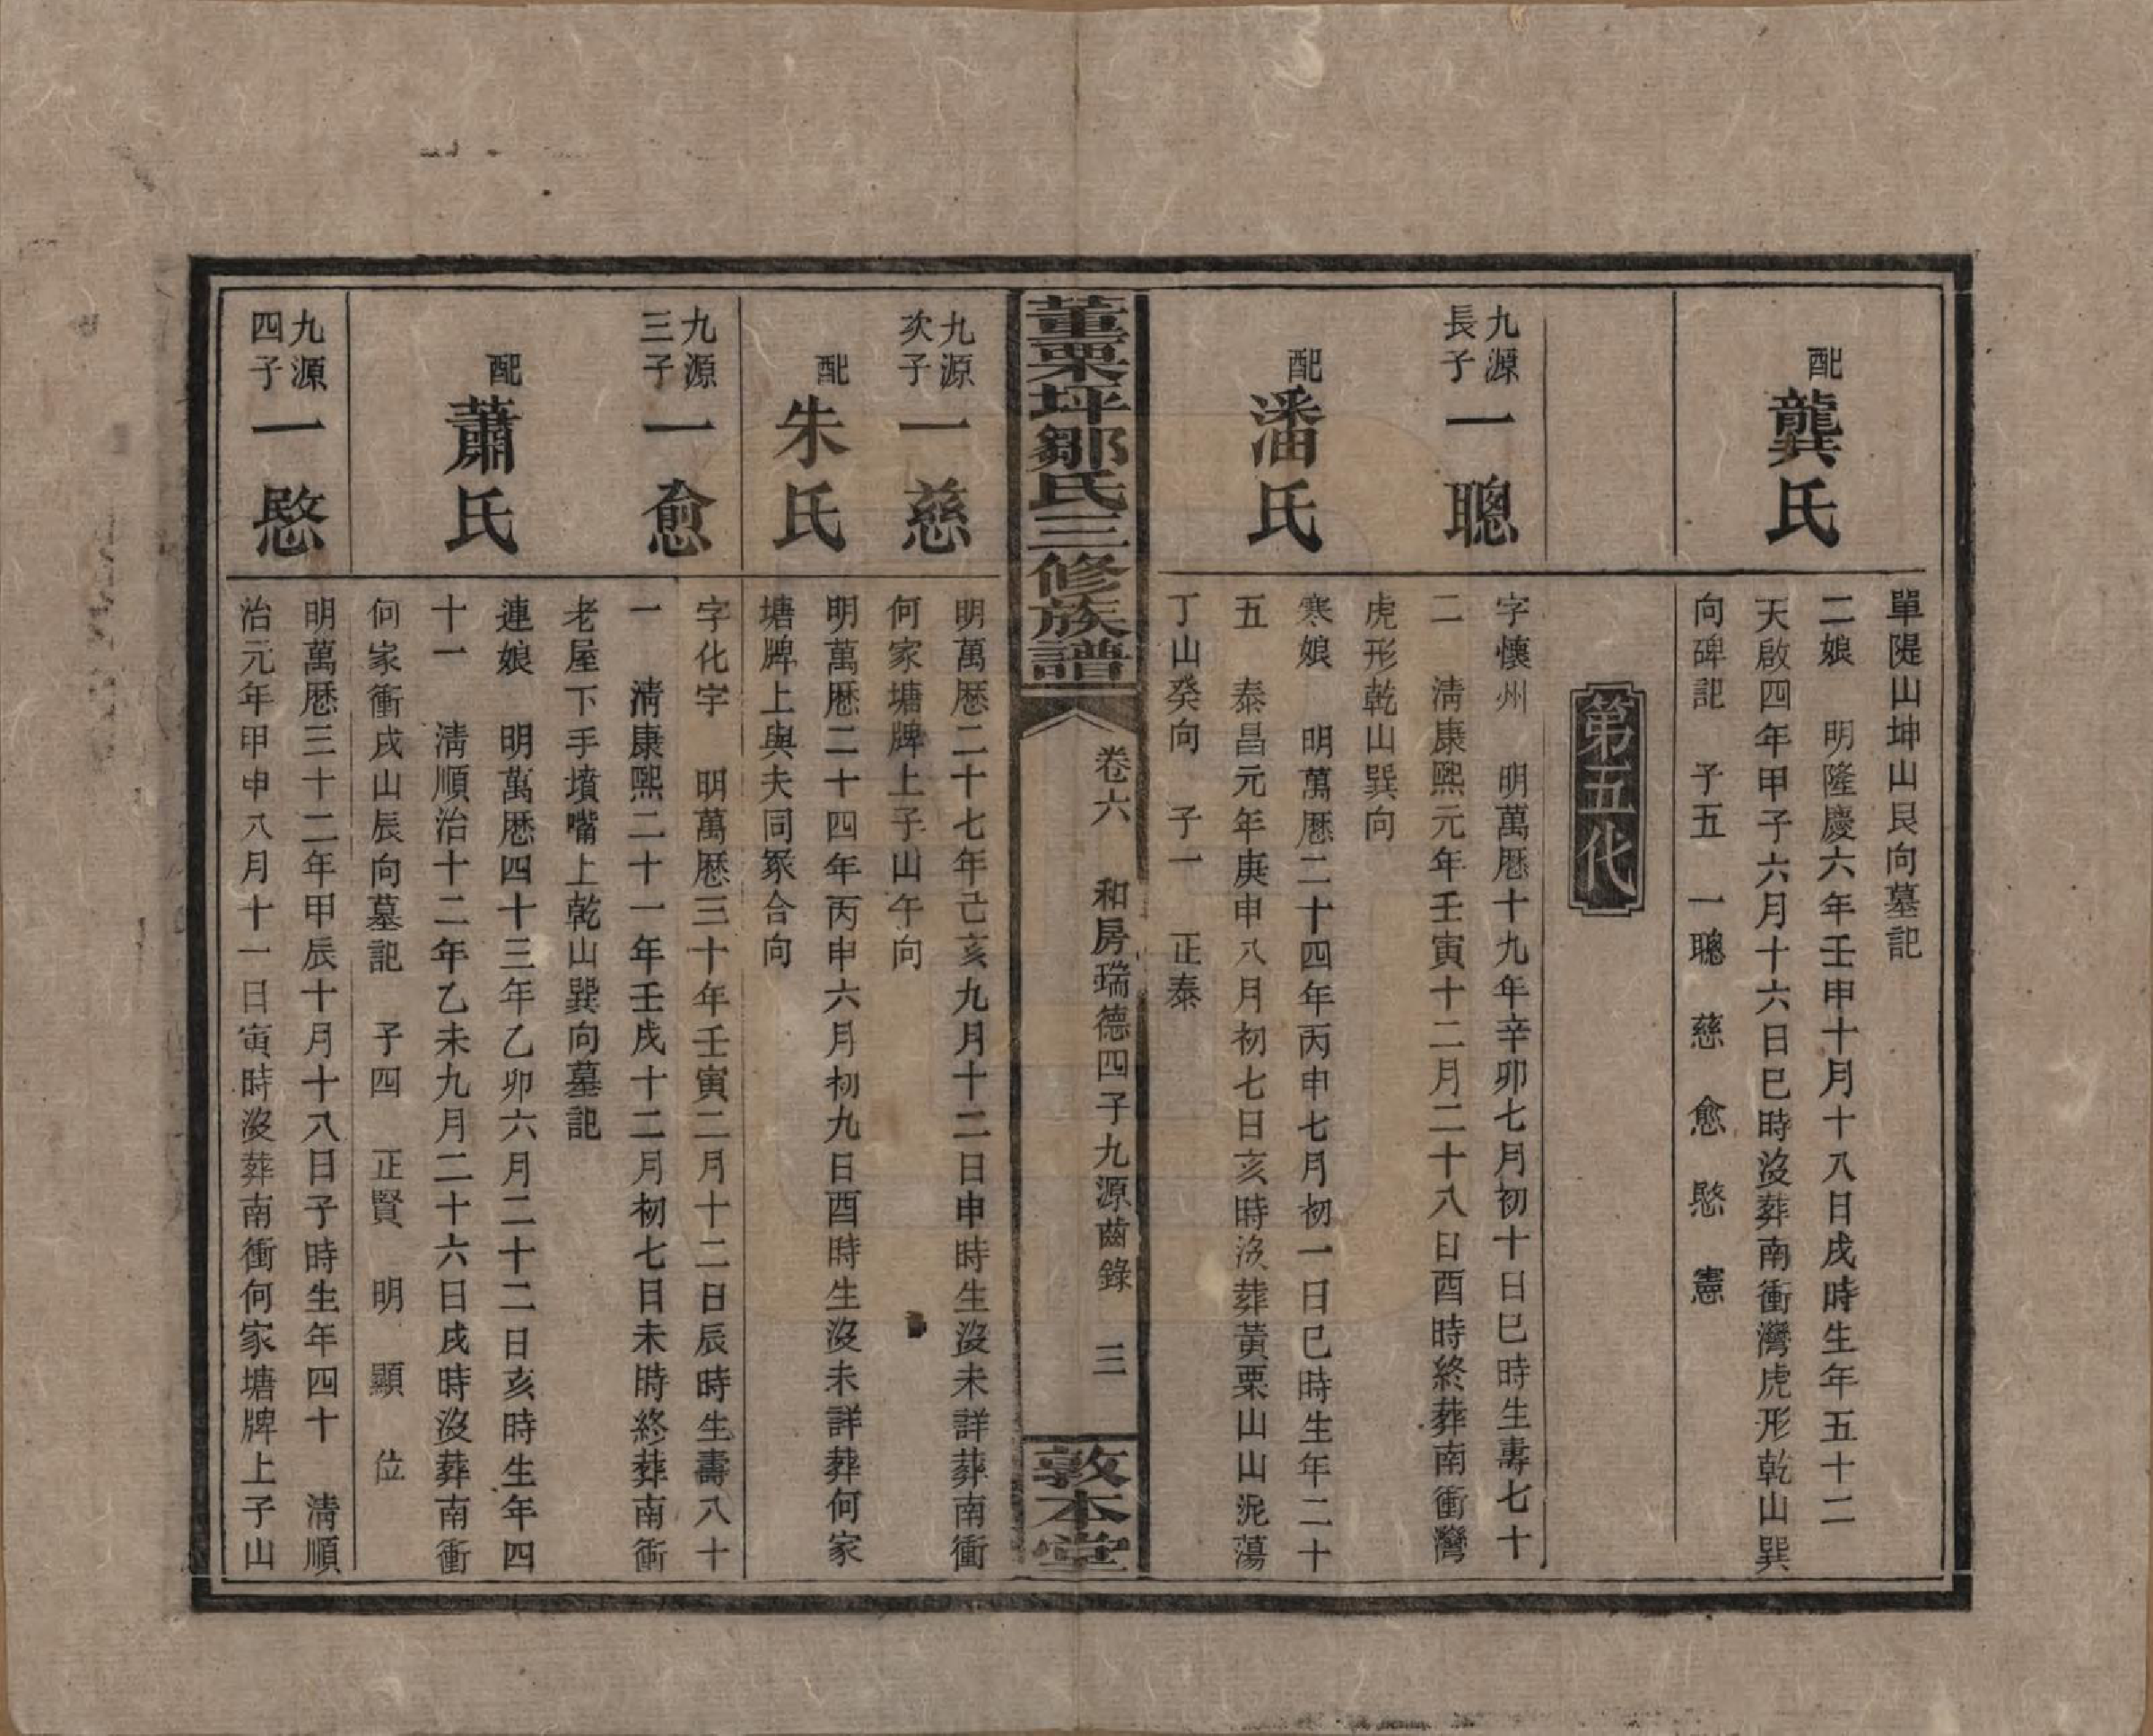 單隄山坤山艮向墓記
配龔氏
二娘　明隆慶六年壬申十月十八日戌時生年五十二
天啟四年甲子六月十六日巳時沒葬南衝灣虎形乾山巽
向碑記　子五　一聰　慈　愈　愍　憲
第五代
九源長子一聰
字懷州　明萬歷十九年辛卯七月初十日巳時生壽七十
二　淸康熙元年壬寅十二月二十八日酉時終葬南衝灣
虎形乾山巽向
配潘氏
寒娘　明萬歷二十四年丙申七月初一日巳時生年二十
五　泰昌元年庚申八月初七日亥時沒葬黃栗山山泥蕩
丁山癸向　子一　正泰
董栗坪鄒氏三修族譜
卷六　和房瑞德四子九源齒錄　三
敦本堂
九源次子一慈
明萬歷二十七年己亥九月十二日申時生沒未詳葬南衝
何家塘牌上子山午向
配朱氏
明萬歷二十四年丙申六月初九日酉時生沒未詳葬何家
塘牌上與夫同冢合向
九源三子一愈
字化宇　明萬歷三十年壬寅二月十二日辰時生壽八十
一　淸康熙二十一年壬戌十二月初七日未時終葬南衝
老屋下手墳嘴上乾山巽向墓記
配蕭氏
連娘　明萬歷四十三年乙卯六月二十二日亥時生年四
十一　淸順治十二年乙未九月二十六日戌時沒葬南衝
何家衝戌山辰向墓記　子四　正賢　明　顯　位
九源四子一愍
明萬歷三十二年甲辰十月十八日子時生年四十　淸順
治元年甲申八月十一日寅時沒葬南衝何家塘牌上子山